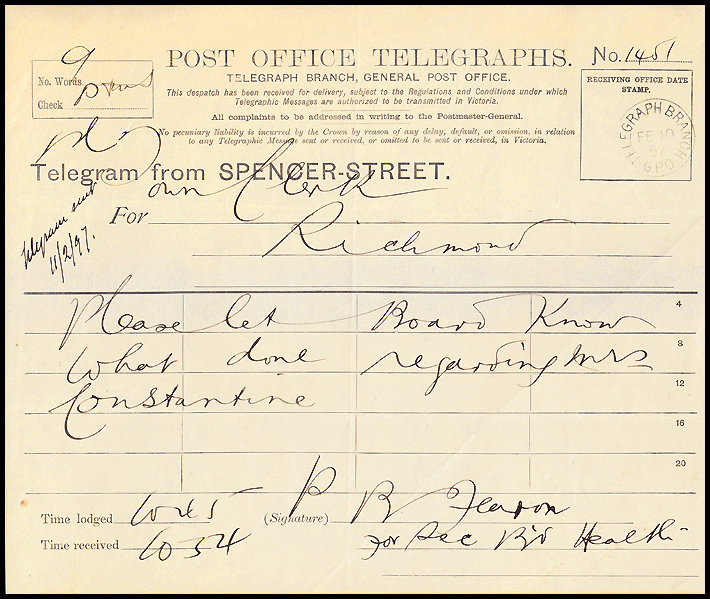 POST OFFICE TELEGRAPHS.
No. 1451
TELEGRAPH BRANCH, GENERAL POST OFFICE.
This despatch has been received for delivery, subject to the Regulations and Conditions under which
Telegraphic Messages are authorized to be transmitted in Victoria.
All complaints to be addressed in writing to the Postmaster-General.
No pecuniary liability is incurred by the Crown by reason of any delay, default, or omission, in relation
to any Telegraphic Message sent or received, or omitted to be sent or received, in Victoria.
No. Words 9
Check
RECEIVING OFFICE DATE
STAMP.
TELEGRAPH BRANCH
FE 10
97
G.P.O.
Telegram from SPENCER-STREET.
Telegram sent
11/2/97.
For Town Clerk
Richmond
Please let Board Know 4
What done regarding Mrs 8
Constantine 12
16
20
Time lodged 10 45
(Signature) P R Fearon
Time received 10 54
For Sec Bd Health